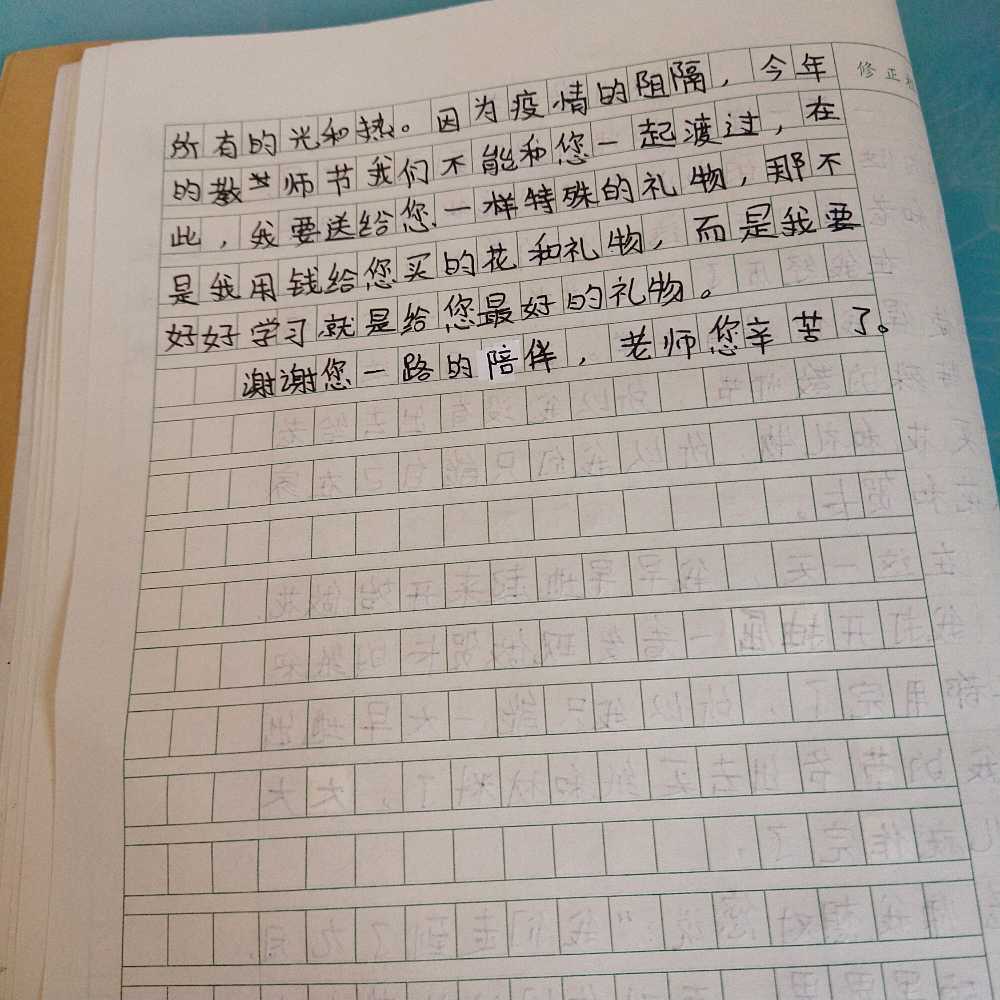 修正
所有的光和热。因为疫情的阻隔，今年
的教师节我们不能和您一起渡过，在
此，我要送给您一样特殊的礼物，那不
是我用钱给您买的花和礼物，而是我要
好好学习就是给您最好的礼物。
谢谢您一路的陪伴，老师您辛苦了。